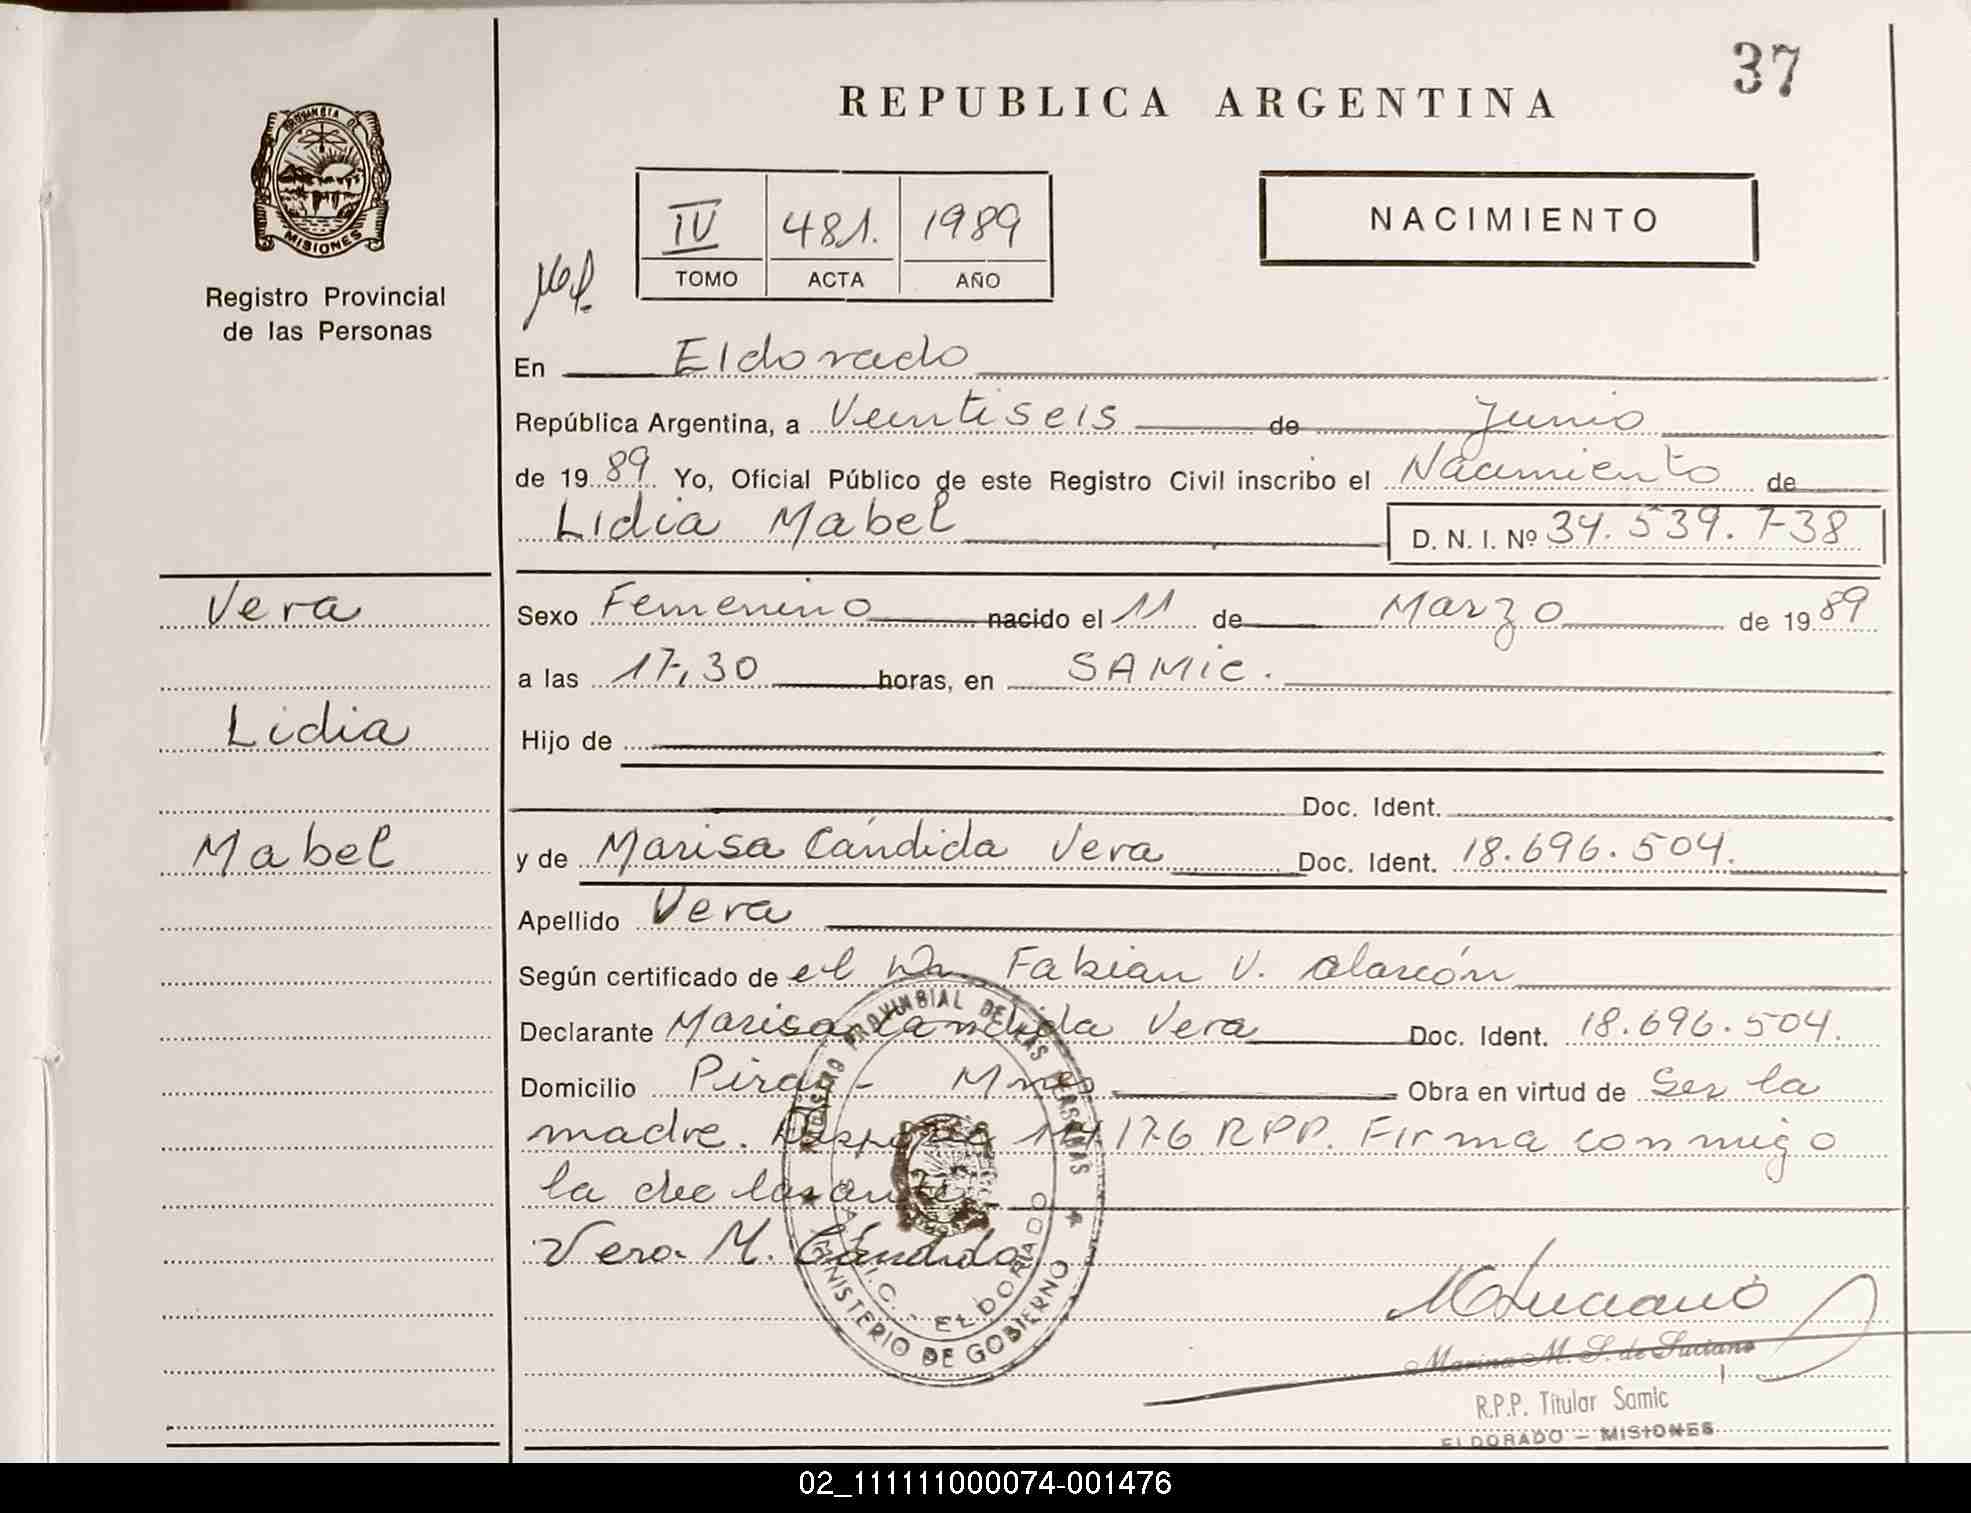 37
REPUBLICA ARGENTINA
PROVINCIA DE
MISIONES
Registro Provincial
de las Personas
IV 481. 1989
TOMO ACTA AÑO
NACIMIENTO
En Eldorado
República Argentina, a Veintiseis de Junio
de 1989 Yo, Oficial Público de este Registro Civil inscribo el Nacimiento de
Lidia Mabel D. N. I. Nº 34.539.738
Vera
Sexo Femenino nacido el 11 de Marzo de 1989
a las 17,30 horas, en SAMIC.
Lidia
Hijo de
Doc. Ident.
Mabel
y de Marisa Cándida Vera Doc. Ident. 18.696.504.
Apellido Vera
Según certificado de el Dr. Fabian V. Alarcón
Declarante Marisa Cándida Vera Doc. Ident. 18.696.504.
Domicilio Piray - Mnes Obra en virtud de Ser la
madre. 176 RPP. Firma conmigo
la declarante.
Vera M. Cándida
REGISTRO PROVINCIAL DE LAS PERSONAS
MINISTERIO DE GOBIERNO
S.A.M.I.C. - ELDORADO
MLuciano
Marina M. S. de Luciano
R.P.P. Titular Samic
ELDORADO - MISIONES
02_111111000074-001476